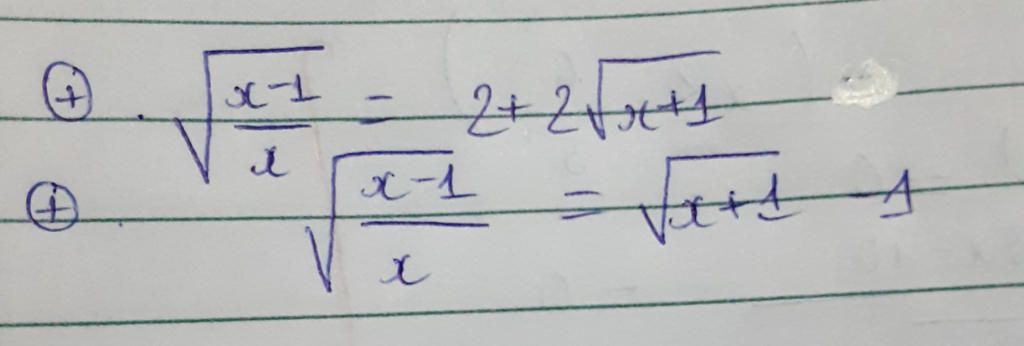 ⊕ . √((x-1)/x) = 2+2√(x+1)
⊕ . √((x-1)/x) = √(x+1) -1